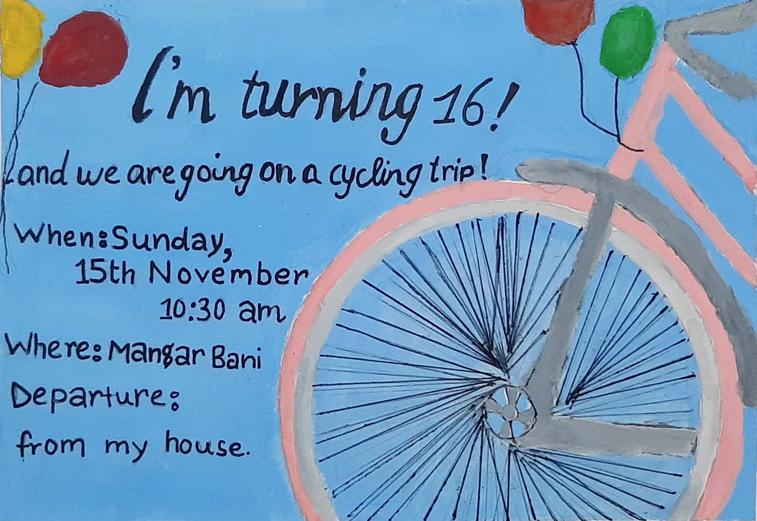 I'm turning 16!
and we are going on a cycling trip!
When: Sunday,
15th November
10:30 am
Where: Mangar Bani
Departure:
from my house.